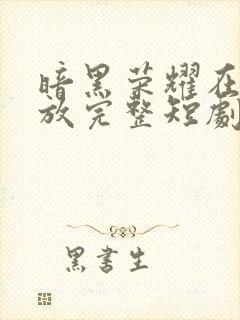 暗黑荣耀在
放完整短劇
黑書生